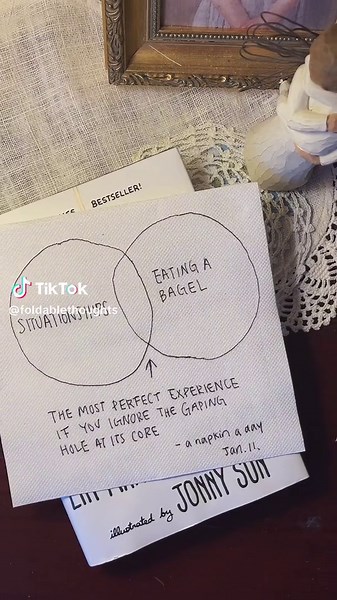 BESTSELLER!
TikTok
@foldablethoughts
SITUATIONSHIPS
EATING A
BAGEL
THE MOST PERFECT EXPERIENCE
IF YOU IGNORE THE GAPING
HOLE AT ITS CORE
- a napkin a day
Jan. 11.
illustrated by JONNY SUN